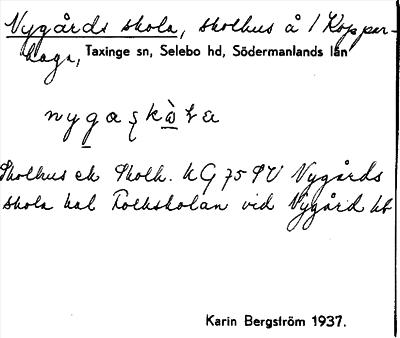 Nygårds skola, skolhus å 1 Kopper-
haga, Taxinge sn, Selebo hd, Södermanlands län
Skolhus ek Skolh. kG 75 SV Nygårds
skola kal Folkskolan vid Nygård hb
Karin Bergström 1937.